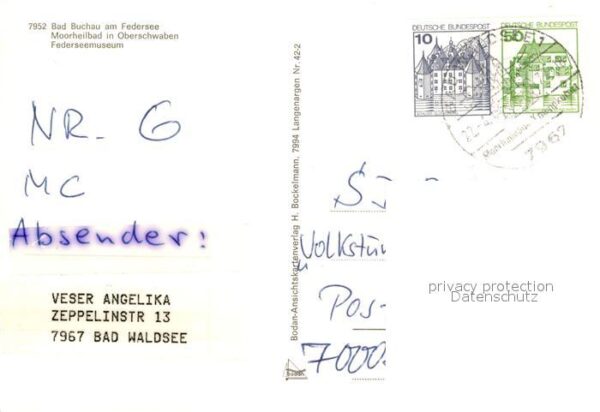 7952 Bad Buchau am Federsee
Moorheilbad in Oberschwaben
Federseemuseum
NR. 6
MC
Absender:
VESER ANGELIKA
ZEPPELINSTR 13
7967 BAD WALDSEE
Bodan-Ansichtskartenverlag H. Bockelmann, 7994 Langenargen Nr. 42-2
DEUTSCHE BUNDESPOST
10
DEUTSCHE BUNDESPOST
50
7967
Volkstüm
Pos-
7000
privacy protection
Datenschutz